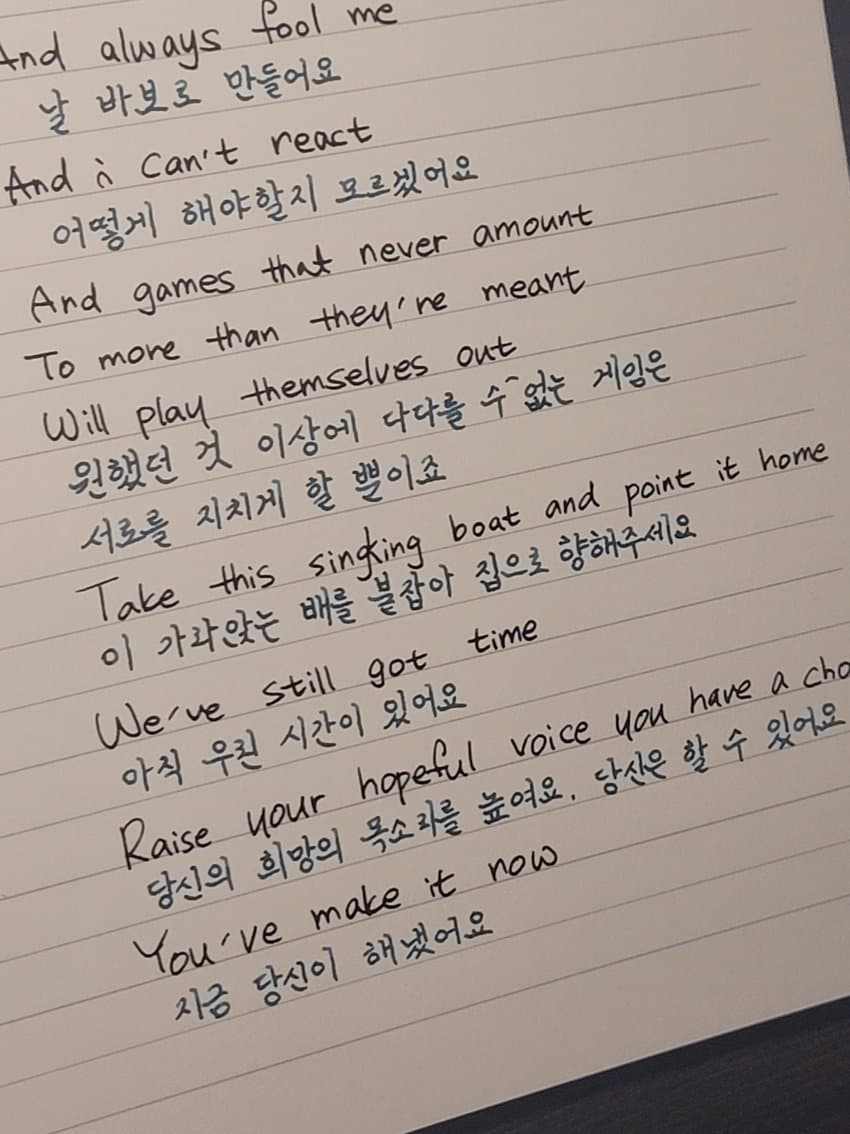 And always fool me
날 바보로 만들어요
And i can't react
어떻게 해야할지 모르겠어요
And games that never amount
To more than they're meant
Will play themselves out
원했던 것 이상에 다다를 수 없는 게임은
서로를 지치게 할 뿐이죠
Take this singking boat and point it home
이 가라앉는 배를 붙잡아 집으로 향해주세요
We've still got time
아직 우린 시간이 있어요
Raise your hopeful voice you have a cho
당신의 희망의 목소리를 높여요. 당신은 할 수 있어요
You've make it now
지금 당신이 해냈어요